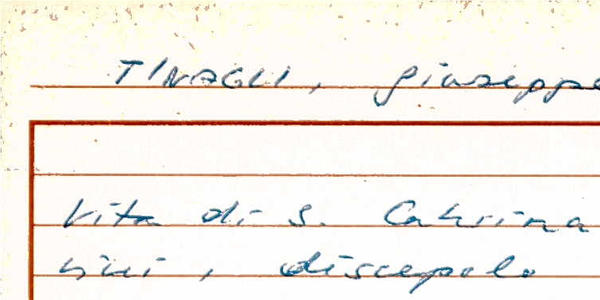 TINAGLI, Giuseppe
Vita di S. Caterina
nini, discepolo